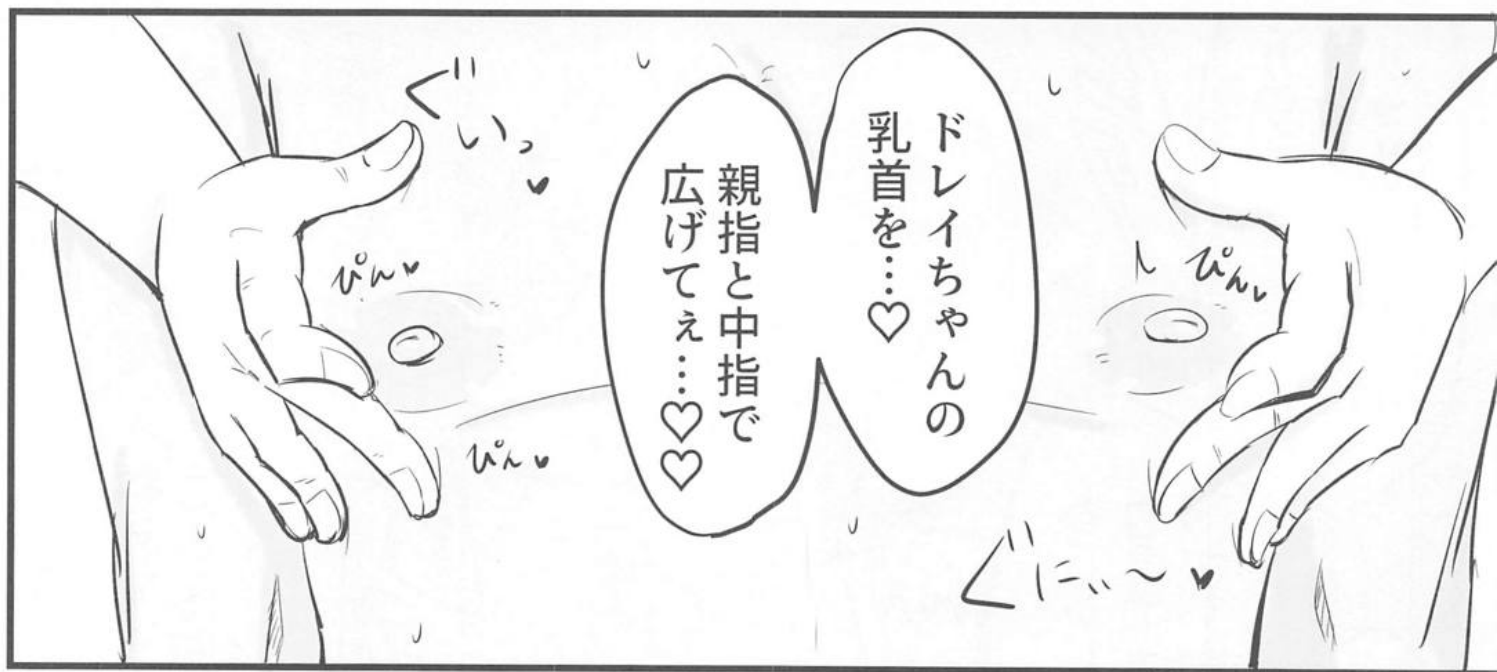 ドレイちゃんの
乳首を…♡
親指と中指で
広げてぇ…♡♡
ぐいっ♥
ぴん♥
ぴん♥
ぴん♥
ぐにぃ〜♥